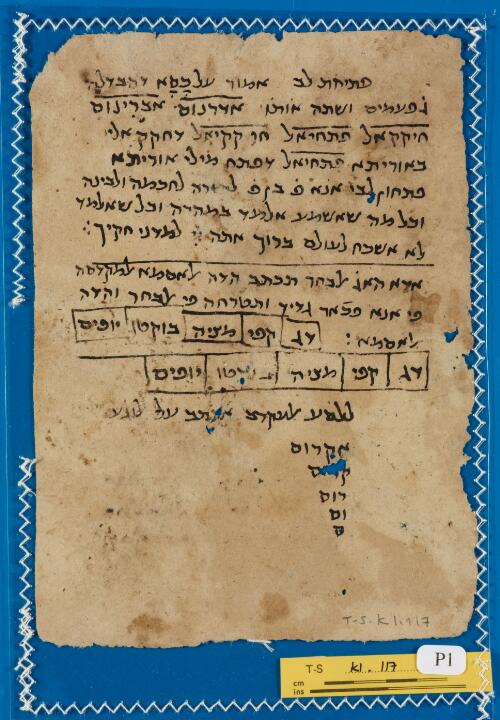 פתיחת לב אמור על כסא דהבדלה
ג פעמים ושתה אותו אדרנוס אברינוס
חיקקאל פתחיאל חר קקיאל דחקק אלי
באוריתא פתחיאל דפתח מילי אוריתא
פתחון לבי אנא פ בן פ לתורה לחכמה ולבינה
וכל מה שאשמע אלמד במהרה וכל שאלמד
לא אשכח לעולם ברוך אתה יי למדני חקיך
אדא האג לבחר תכתב הדה לאסמא למקדסה
פי אנא פכאר גדיד ותטרחה פי לבחר והדה
לאסמא : דג קפי מציה בוקטו יופים
דג קפי מציה יופים
ללסע לעקרב יכתב על
אקרוס
רוס
וס
ס
T-S. K 1.117
T-S K1.117
P1
cm
ins